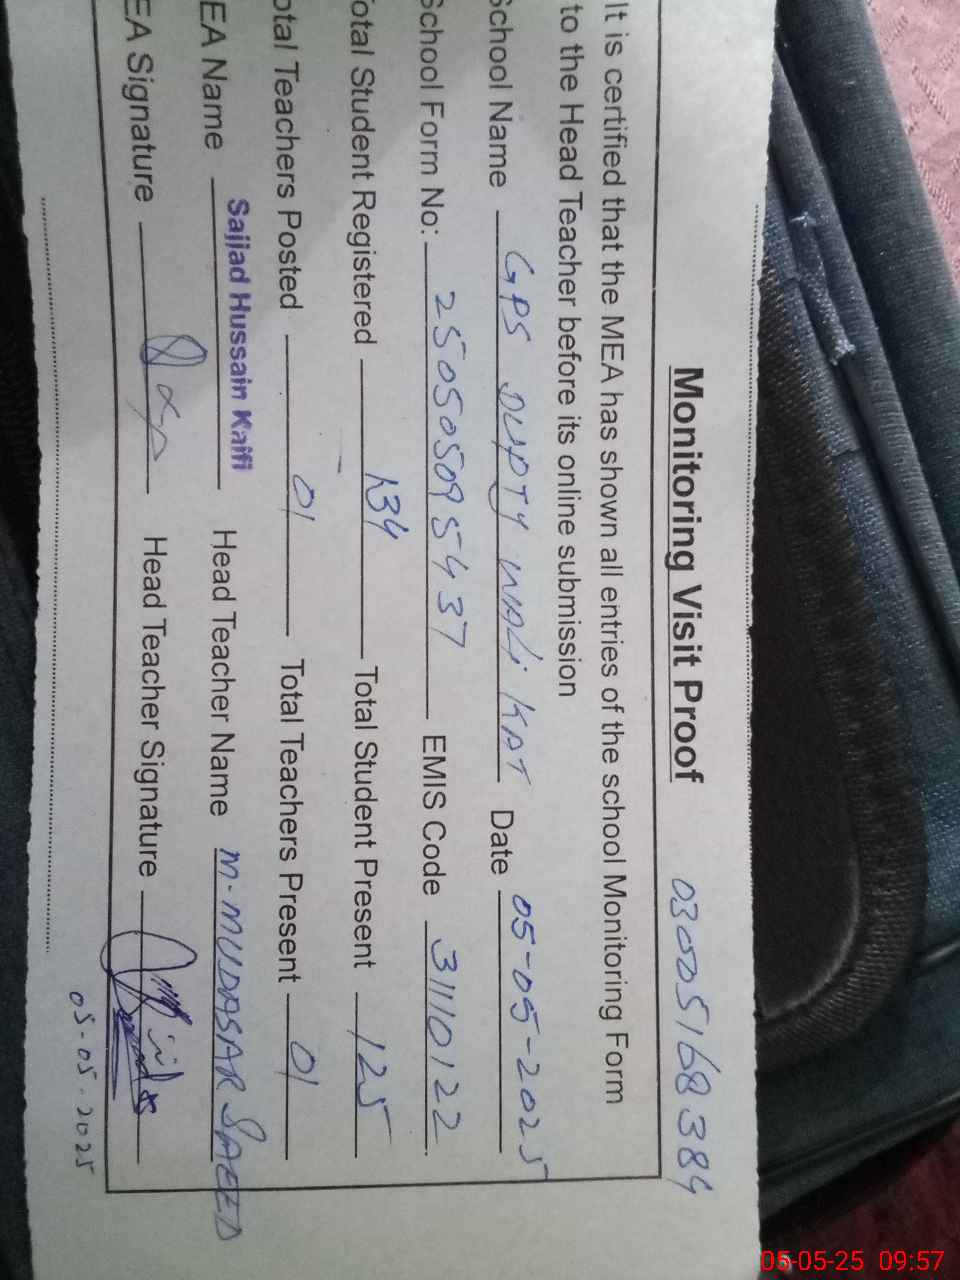 Monitoring Visit Proof 03005168384
It is certified that the MEA has shown all entries of the school Monitoring Form
to the Head Teacher before its online submission
School Name GPS DUPTY WALI KAT Date 05-05-2025
School Form No: 25050509 5437 EMIS Code 31110122
otal Student Registered 134 Total Student Present 125
otal Teachers Posted 01 Total Teachers Present 01
EA Name Sajjad Hussain Kaifi Head Teacher Name M. MUDASAR SAEED
EA Signature Head Teacher Signature
05.05.2025
05-05-25 09:57